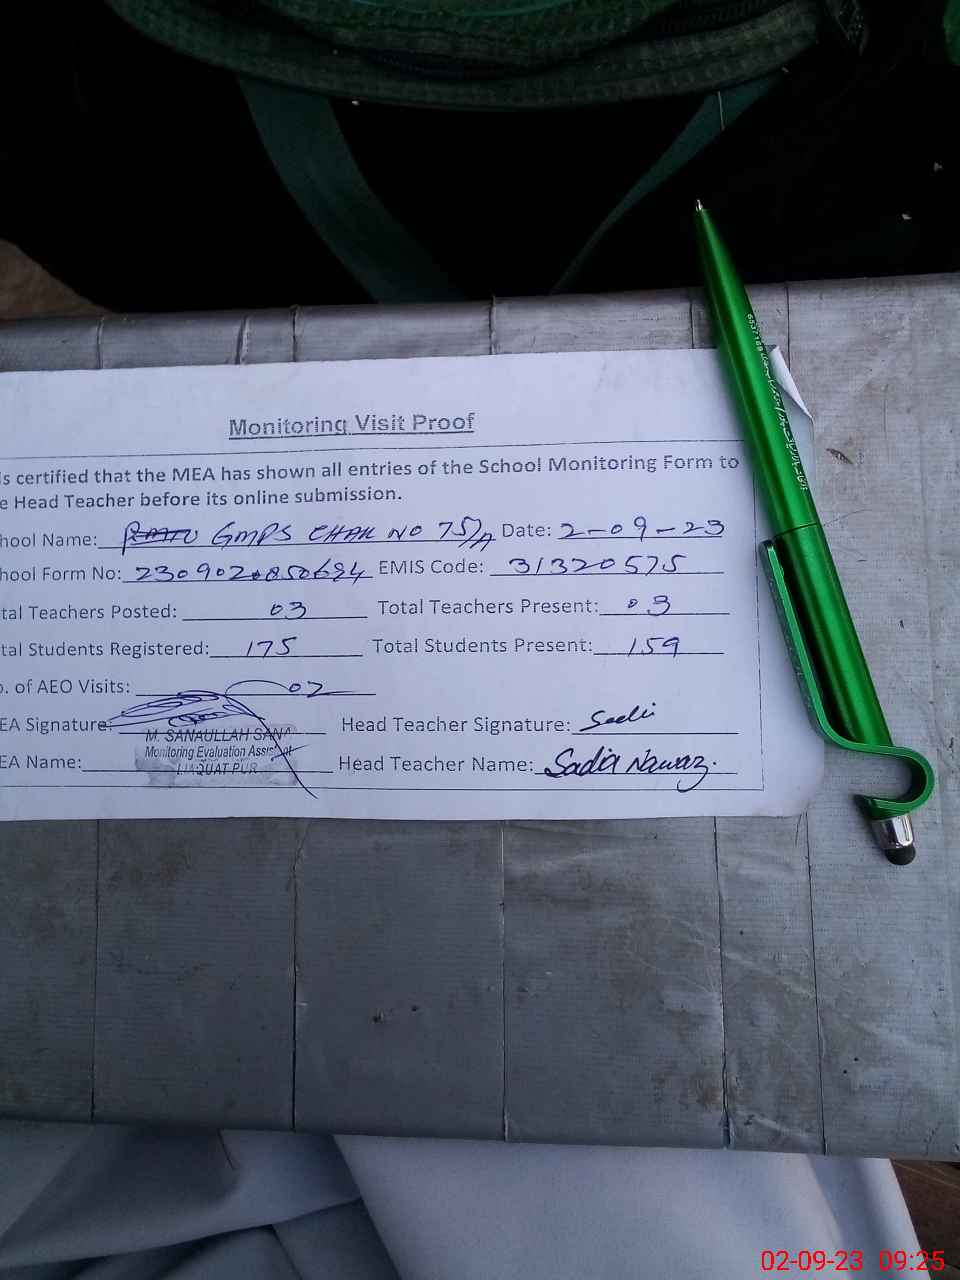 Monitoring Visit Proof
is certified that the MEA has shown all entries of the School Monitoring Form to
e Head Teacher before its online submission.
hool Name: GMPS CHAK NO 75/A Date: 2-09-23
hool Form No: EMIS Code: 31320575
tal Teachers Posted: 03 Total Teachers Present: 03
tal Students Registered: 175 Total Students Present: 159
o. of AEO Visits: 02
EA Signature: Head Teacher Signature: Sadi
M. SANAULLAH SANA
Monitoring Evaluation Assistant
LIAQUAT PUR
EA Name: Head Teacher Name: Sadia Nawaz.
02-09-23 09:25